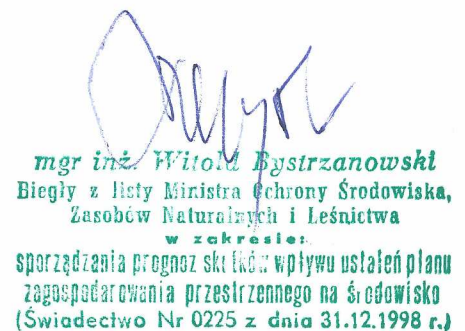 mgr inż. Witold Bystrzanowski
Biegły z listy Ministra Ochrony Środowiska,
Zasobów Naturalnych i Leśnictwa
w zakresie:
sporządzania prognoz skutków wpływu ustaleń planu
zagospodarowania przestrzennego na środowisko
(Świadectwo Nr 0225 z dnia 31.12.1998 r.)